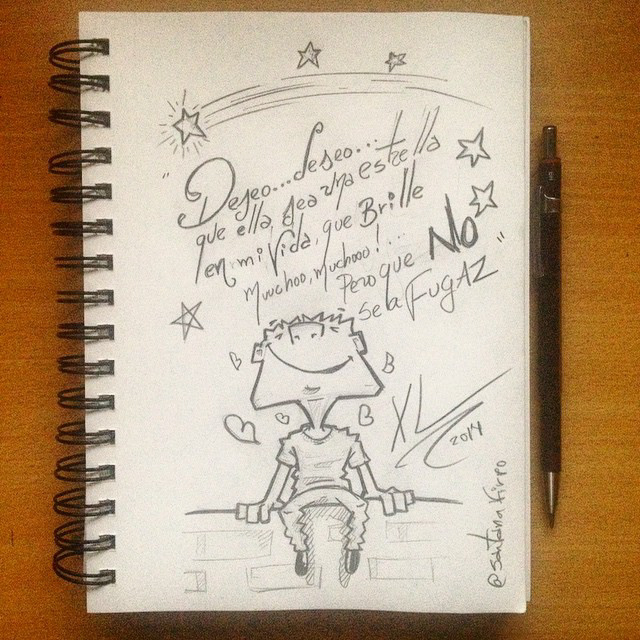 "Deseo...deseo...
que ella sea una estrella
en mi vida, que Brille
Muuchoo, muchooo!...
Pero que NO
sea FugAZ"
XL
2014
@Santana Firpo